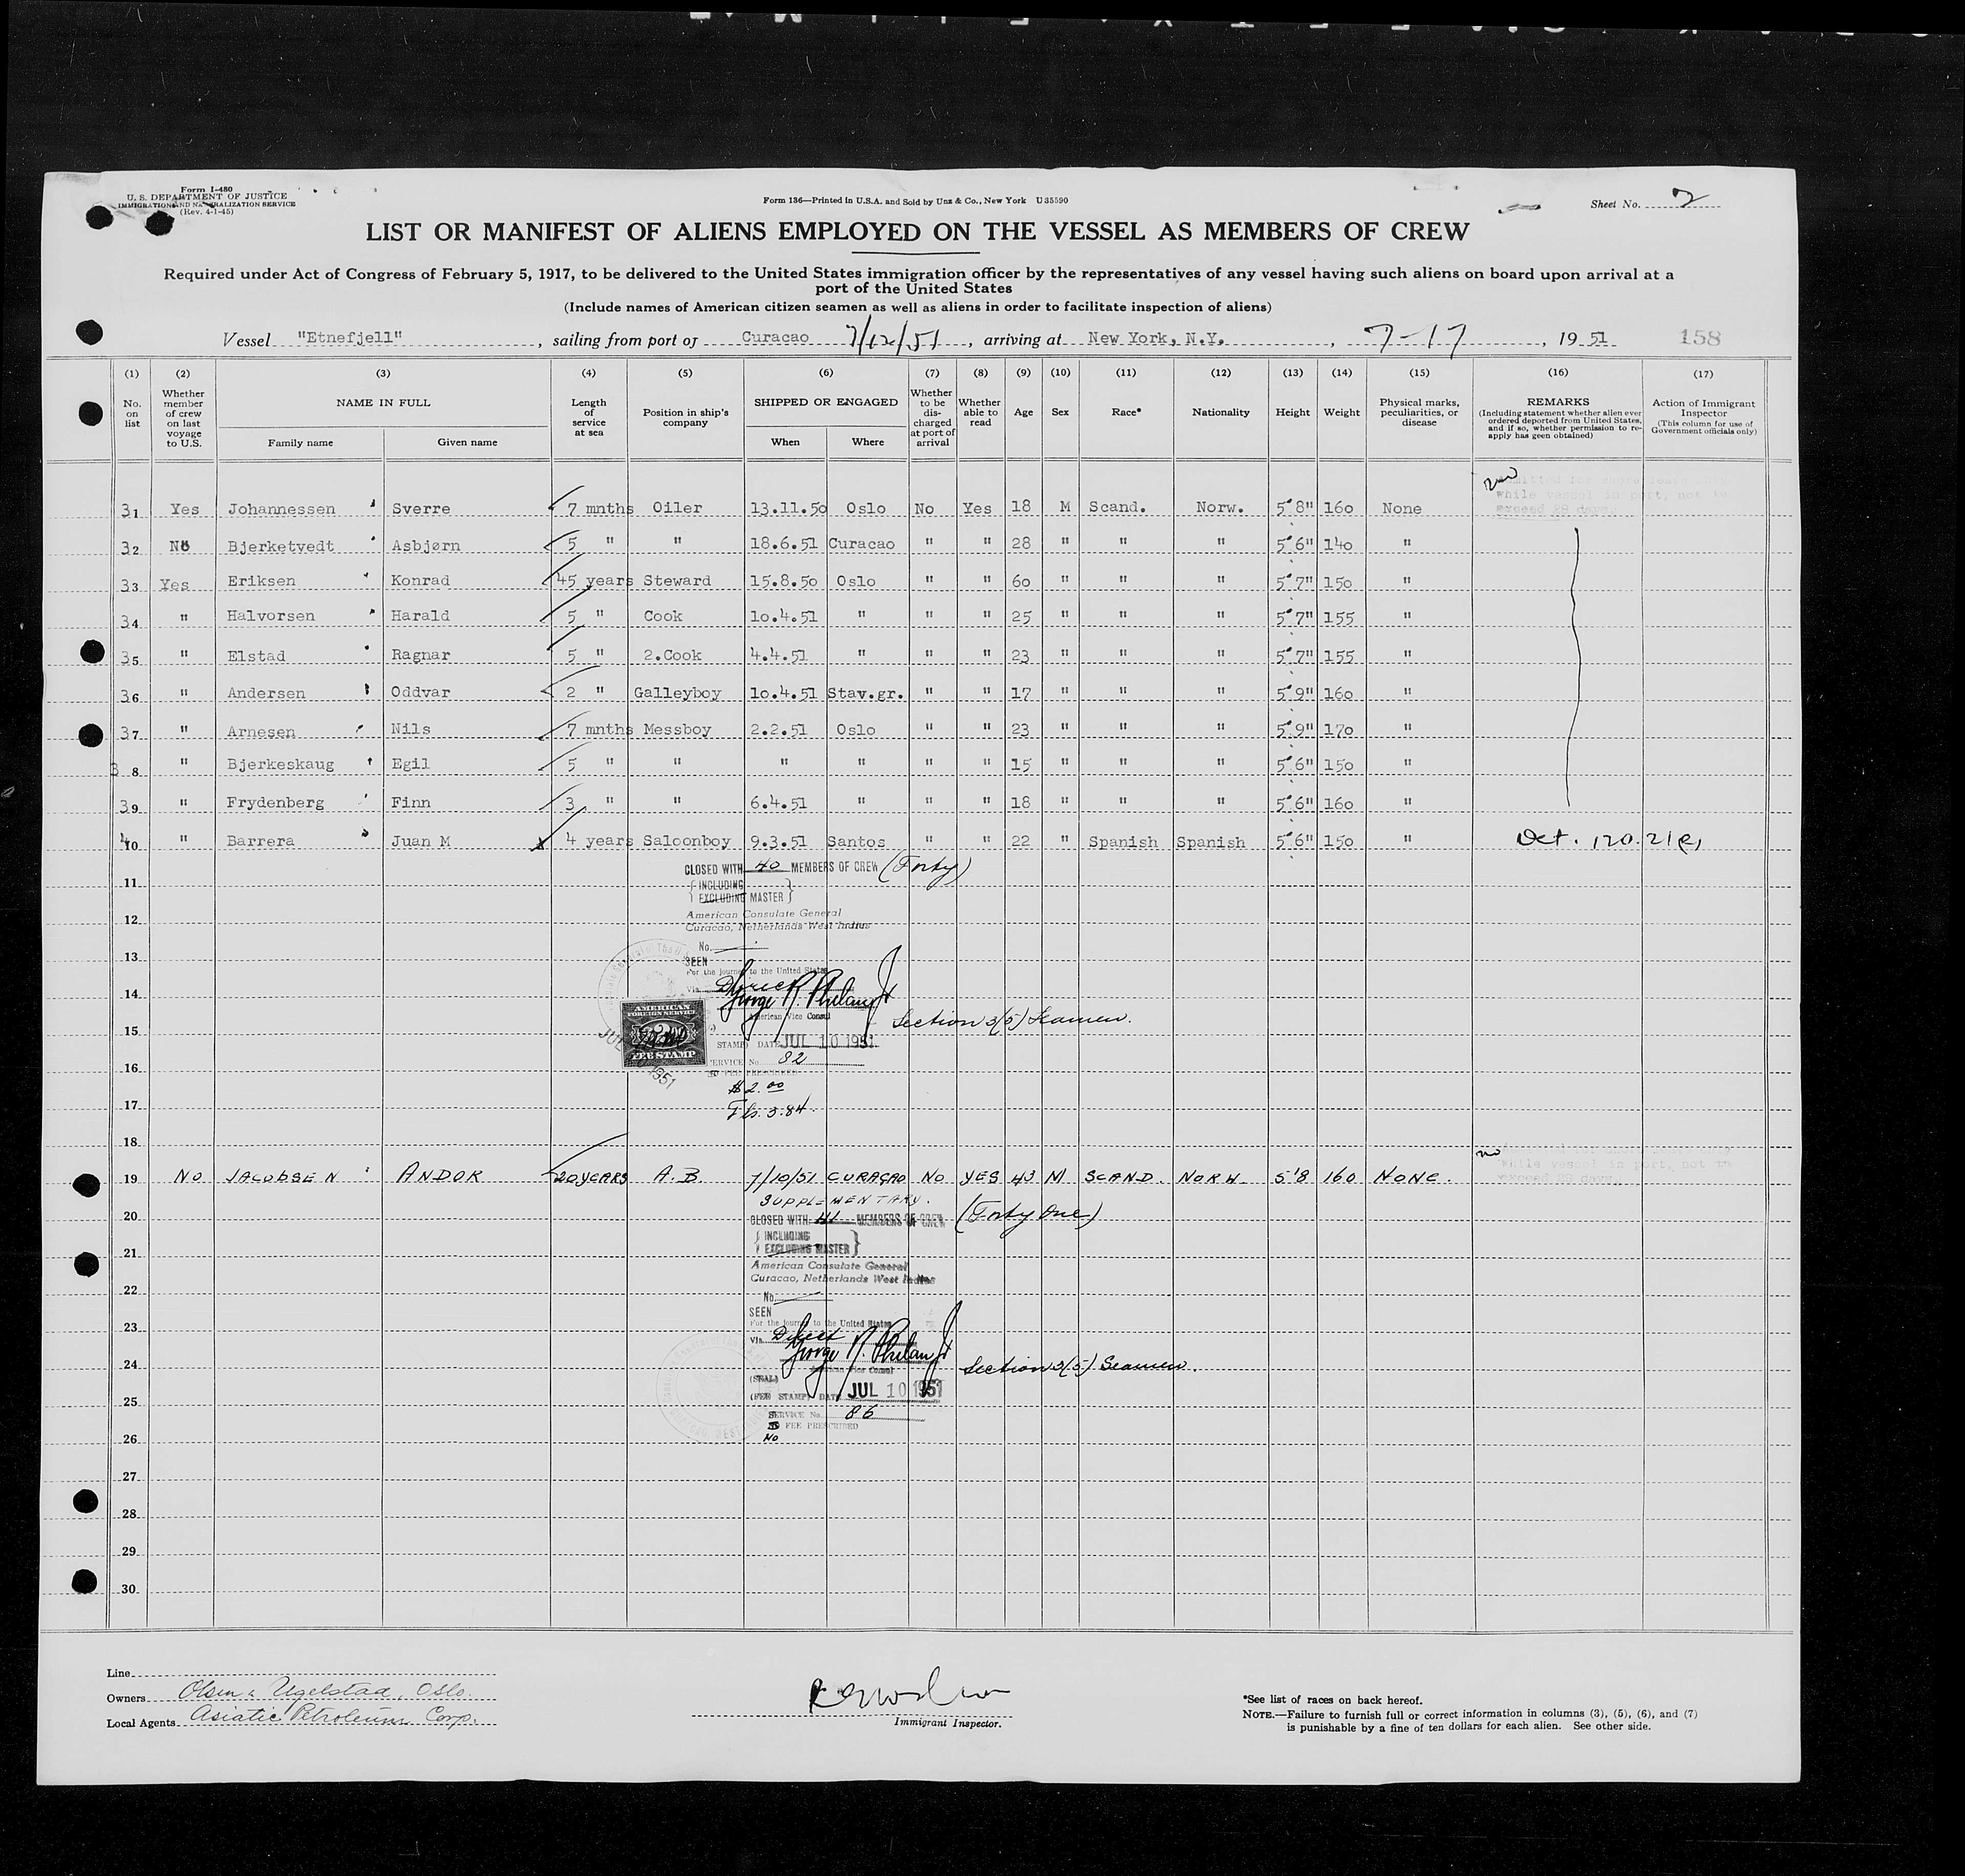 Form I-480
U. S. DEPARTMENT OF JUSTICE
IMMIGRATION AND NATURALIZATION SERVICE
(Rev. 4-1-45)
Form 136—Printed in U.S.A. and Sold by Unz & Co., New York U 35590
Sheet No. 2
LIST OR MANIFEST OF ALIENS EMPLOYED ON THE VESSEL AS MEMBERS OF CREW
Required under Act of Congress of February 5, 1917, to be delivered to the United States immigration officer by the representatives of any vessel having such aliens on board upon arrival at a
port of the United States
(Include names of American citizen seamen as well as aliens in order to facilitate inspection of aliens)
Vessel "Etnefjell", sailing from port of Curacao 7/12/51, arriving at New York, N.Y., 7-17, 19 51 158
(1) (2) (3) (4) (5) (6) (7) (8) (9) (10) (11) (12) (13) (14) (15) (16) (17)
No. on list
Whether member of crew on last voyage to U.S.
NAME IN FULL
Family name
Given name
Length of service at sea
Position in ship's company
SHIPPED OR ENGAGED
When
Where
Whether to be discharged at port of arrival
Whether able to read
Age
Sex
Race*
Nationality
Height
Weight
Physical marks, peculiarities, or disease
REMARKS
(Including statement whether alien ever ordered deported from United States, and if so, whether permission to re-apply has geen obtained)
Action of Immigrant Inspector
(This column for use of Government officials only)
while vessel in port, not to
exceed 29 days.
31 Yes Johannessen Sverre 7 mnths Oiler 13.11.50 Oslo No Yes 18 M Scand. Norw. 5'8" 160 None
32 No Bjerketvedt Asbjørn 5 " " 18.6.51 Curacao " " 28 " " " 5'6" 140 "
33 Yes Eriksen Konrad 45 years Steward 15.8.50 Oslo " " 60 " " " 5'7" 150 "
34 " Halvorsen Harald 5 " Cook 10.4.51 " " " 25 " " " 5'7" 155 "
35 " Elstad Ragnar 5 " 2.Cook 4.4.51 " " " 23 " " " 5'7" 155 "
36 " Andersen Oddvar 2 " Galleyboy 10.4.51 Stav.gr. " " 17 " " " 5'9" 160 "
37 " Arnesen Nils 7 mnths Messboy 2.2.51 Oslo " " 23 " " " 5'9" 170 "
38 " Bjerkeskaug Egil 5 " " " " " " 15 " " " 5'6" 150 "
39 " Frydenberg Finn 3 " " 6.4.51 " " " 18 " " " 5'6" 160 "
40 " Barrera Juan M x 4 years Saloonboy 9.3.51 Santos " " 22 " Spanish Spanish 5'6" 150 " Det. 120.21
CLOSED WITH 40 MEMBERS OF CREW (Forty)
11
{ INCLUDING
EXCLUDING MASTER }
12
American Consulate General
Curacao, Netherlands West Indies
13
No.
SEEN
For the journey to the United States
14
Via Direct
George R. Phelan Jr
American Vice Consul
Section 3(5) Seamen.
15
AMERICAN
FOREIGN SERVICE
FEE STAMP
STAMP) DATE JUL 10 1951
SERVICE No. 82
16
FEE PRESCRIBED
$2.00
17
Fls. 3.84
18
while vessel in port, not to
exceed 29 days.
19 No JACOBSEN ANDOR 20 YEARS A.B. 7/10/51 CURAÇAO NO YES 43 M SCAND. NORW. 5'8 160 NONE.
SUPPLEMENTARY.
20
CLOSED WITH 41 MEMBERS OF CREW (Forty One)
21
{ INCLUDING
EXCLUDING MASTER }
American Consulate General
Curacao, Netherlands West Indies
22
No.
SEEN
23
For the journey to the United States
Via Direct
George R. Phelan Jr
24
American Vice Consul
Section 3(5) Seamen.
(SEAL)
(FEE STAMP) DATE JUL 10 1951
25
SERVICE No. 86
NO FEE PRESCRIBED
26
27
28
29
30
Line
Owners Olsen & Ugelstad, Oslo.
Local Agents Asiatic Petroleum Corp.
Immigrant Inspector.
*See list of races on back hereof.
NOTE.—Failure to furnish full or correct information in columns (3), (5), (6), and (7)
is punishable by a fine of ten dollars for each alien. See other side.